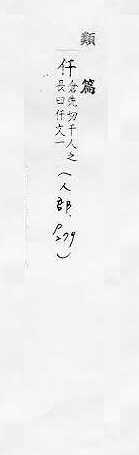 類篇
仟
倉先切千人之
長曰仟文一
(人部, P279)